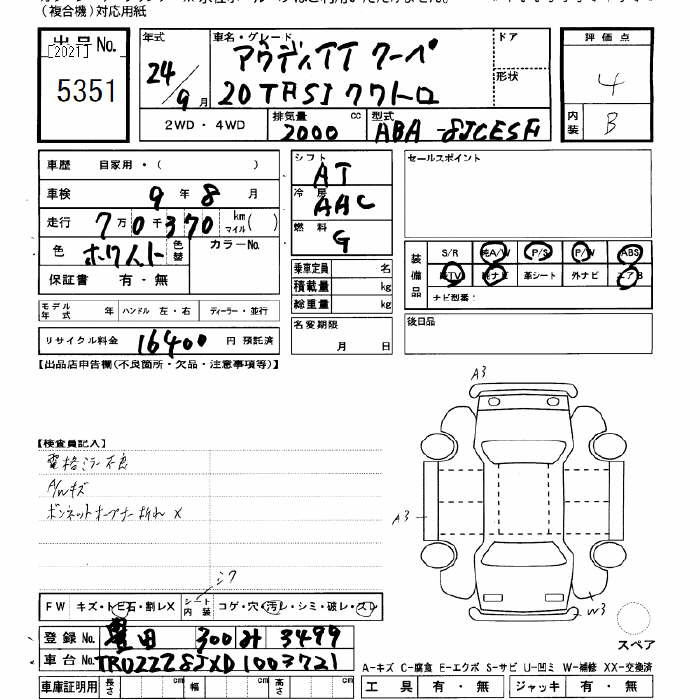 (複合機)対応用紙
出品No.
[2021]
5351
年式
24/9月
車名・グレード
アウディTT クーペ
20TFSIクワトロ
ドア
形状
評価点
4
内装
B
2WD・4WD
排気量
2000
cc
型式
ABA-8JCESF
車歴 自家用・( )
車検 9年8月
走行 7万0千370km
マイル( )
色 ホワイト 色替
カラーNo.
保証書 有・無
モデル年式 年 ハンドル 左・右 ディーラー・並行
リサイクル料金 16400円 預託済
シフト
AT
冷房
AAC
燃料
G
乗車定員 名
積載量 kg
総重量 kg
名変期限
月 日
セールスポイント
装備品
S/R 純A/W P/S P/W ABS
純TV 純ナビ 革シート 外ナビ エアB
ナビ型番:
後日品
【出品店申告欄(不良箇所・欠品・注意事項等)】
【検査員記入】
電格ミラー不良
A/Wキズ
ボンネットオープナー折れ X
A3
A3
W3
スペア
シワ
FW キズ・トビ石・割レX
シート内装 コゲ・穴・汚レ・シミ・破レ・スレ
登録No. 豊田 300 み 3499
車台No. TRUZZZ8JXD1003721
車庫証明用 長さ cm 幅 cm 高さ cm
A-キズ C-腐食 E-エクボ S-サビ U-凹ミ W-補修 XX-交換済
工具 有・無 ジャッキ 有・無